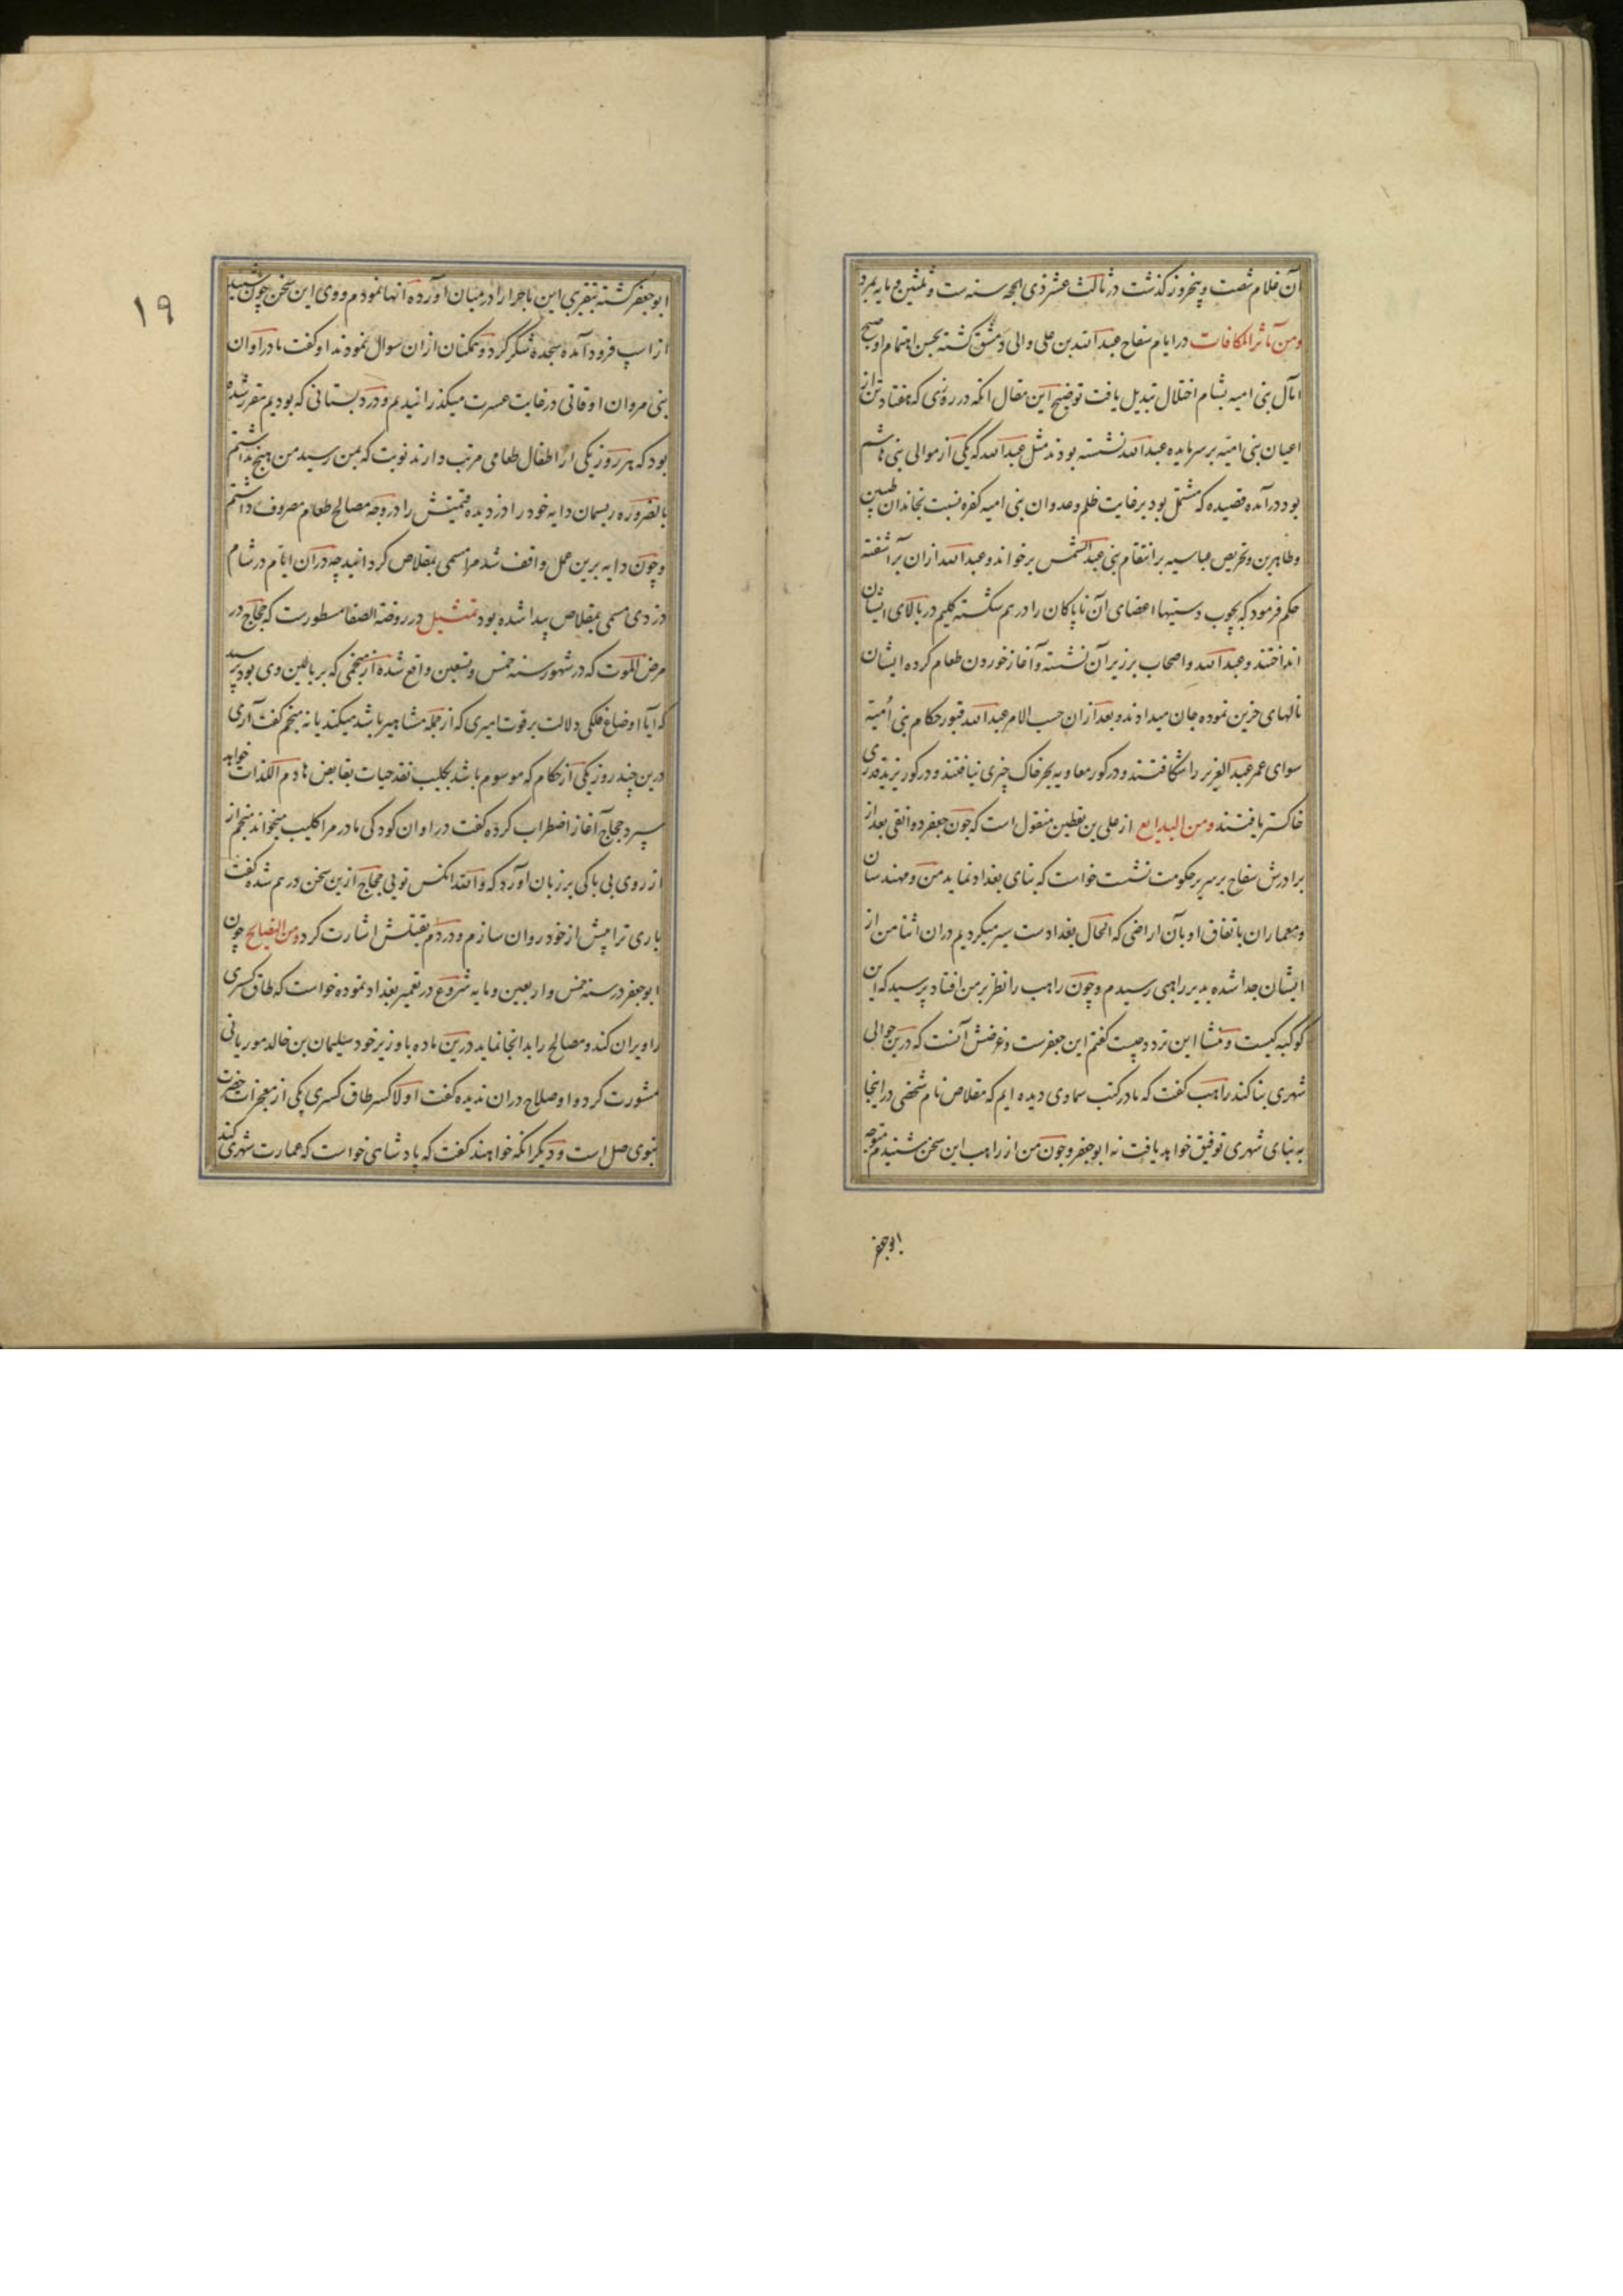 آن غلام شصت و پنجروز گذشت در ثالث عشر ذی الحجه سنه ست و ثلثین و مایه بمرد
ومن مآثر المکافات در ایام سفاح عبدالله بن علی والی دمشق گشته بحسن اهتمام او صبح
آمال بنی امیه بشام اختلال تبدیل یافت توضیح این مقال انکه در روزی که هفتاد تن از
اعیان بنی امیه بر سر مایده عبدالله نشسته بودند مثل عبدالله که یکی از موالی بنی هاشم
بود درآمده قصیده که مشتمل بود بر غایت ظلم و عدوان بنی امیه کفره نسبت بخاندان طیبین
وطاهرین و تحریص عباسیه بر انتقام بنی عبدالشمس برخواند و عبدالله ازان برآشفته
حکم فرمود که بچوب دستیها اعضای آن ناپاکان را در هم شکسته گلیم در بالای ایشان
انداختند و عبدالله و اصحاب بر زیر آن نشسته و آغاز خوردن طعام کرده ایشان
نالهای حزین نموده جان میدادند و بعد ازان حسب الامر عبدالله قبور حکام بنی امیه
سوای عمر عبدالعزیز را شکافتند و در کور معاویه بجز خاک چیزی نیافتند و در کور یزید قدری
خاکستر یافتند ومن البدایع از علی بن یقطین منقول است که چون جعفر دوانقی بعد از
برادرش سفاح بر سریر حکومت نشست خواست که بنای بغداد نماید من و مهندسان
ومعماران باتفاق او بآن اراضی که الحال بغدادست سیر میکردیم دران اثنا من از
ایشان جدا شده بدیر راهبی رسیدم و چون راهب را نظر بر من افتاد پرسید که این
کوکبه کیست و منشا این تردد چیست گفتم این جعفرست و غرضش آنست که درین حوالی
شهری بنا کند راهب گفت که ما در کتب سماوی دیده ایم که مقلاص نام شخصی در اینجا
به بنای شهری توفیق خواهد یافت نه ابوجعفر و چون من از راهب این سخن شنیدم متوجه
ابوجعفر
۱۹
ابوجعفر گشته بتقریبی این ماجرا را در میان آورده آنها نمودم و وی این سخن چون شنید
از اسپ فرود آمده سجده شکر کرد و همکنان ازان سوال نمودند او گفت ما در اوان
بنی مروان اوقاتی در غایت عسرت میگذرانیدیم و در دبستانی که بودیم مقرر شده
بود که هر روز یکی از اطفال طعامی مرتب دارند نوبت که بمن رسید من هیچ نداشتم
بالضروره ریسمان دایه خود را دزدیده قیمتش را در وجه مصالح طعام مصروف داشتم
وچون دایه برین عمل واقف شد مرا مسمی بمقلاص کردانید چه دران ایام در شام
دزدی مسمی بمقلاص پیدا شده بود تمثیل در روضة الصفا مسطورست که حجاج در
مرض الموت که در شهور سنه خمس و تسعین واقع شده از منجمی که بر بالین وی بود پرسید
که آیا اوضاع فلکی دلالت بر فوت امیری که از جمله مشاهیر باشد میکند یا نه منجم گفت آری
درین چند روز یکی از حکام که موسوم باشد بکلیب نقد حیات بقابض هادم اللذات خواهد
سپرد حجاج آغاز اضطراب کرده گفت در اوان کودکی مادر مرا کلیب میخواند منجم از
از روی بی باکی بر زبان آورد که والله انکس تویی حجاج ازین سخن درهم شده گفت
باری ترا پیش از خود روان سازم و در دم بقتلش اشارت کرد ومن النصایح چون
ابوجعفر در سنه خمس و اربعین و مایه شروع در تعمیر بغداد نموده خواست که طاق کسری
را ویران کند و مصالح را بدانجا نماید درین ماده با وزیر خود سلیمان بن خالد موریانی
مشورت کرد و او صلاح دران ندیده گفت اولا کسر طاق کسری یکی از معجزات حضرت
نبوی صل است و دیگر انکه خواهند گفت که پادشاهی خواست که عمارت شهری کند